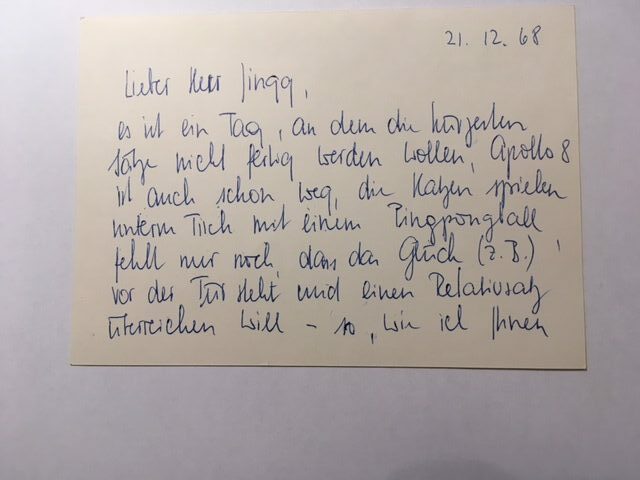 21. 12. 68
Lieber Herr Jingg,
es ist ein Tag, an dem die kürzesten
Sätze nicht fertig werden wollen, Apollo 8
ist auch schon weg, die Katzen spielen
unterm Tisch mit einem Pingpongball,
fehlt nur noch, dass das Glück (z.B.)
vor der Tür steht und einen Relativsatz
überreichen will – so, wie ich Ihnen